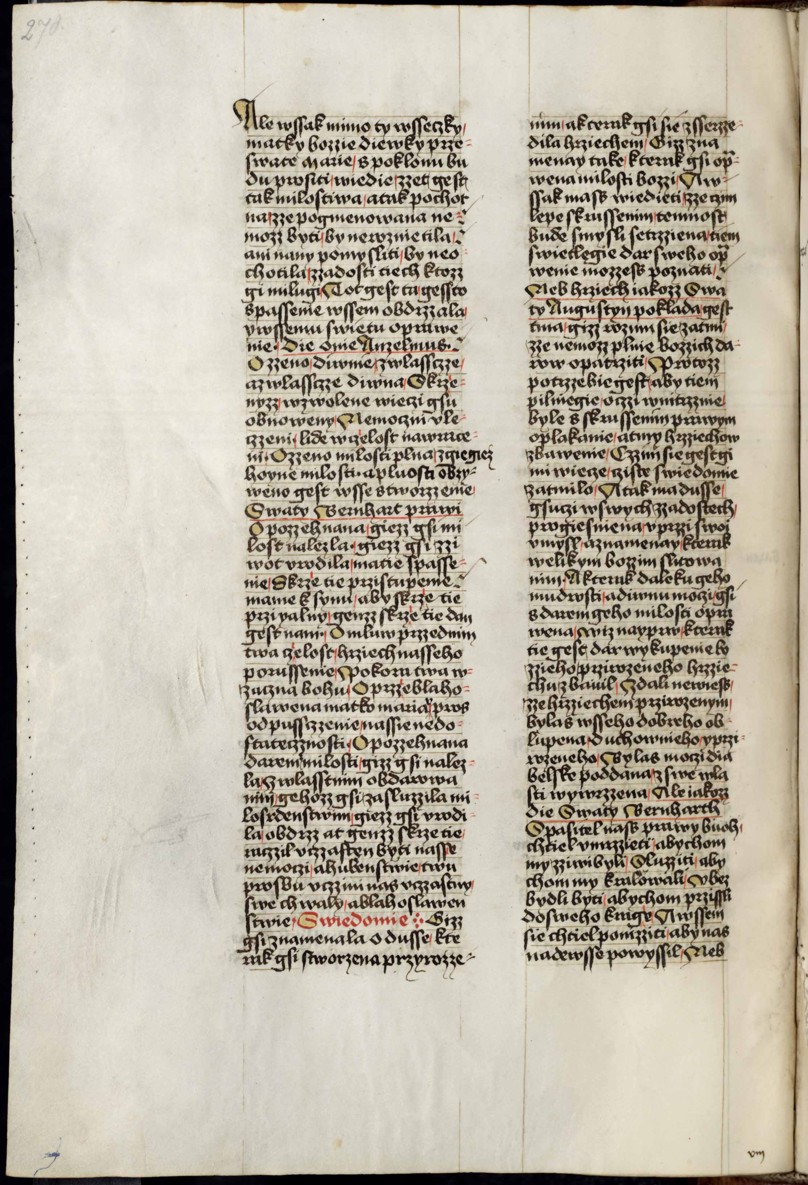 270.
Ale wssak mimo ty wsseczky
matky bozzie diewky prze-
swate Marie, s poklonu bu
du prositi, wiedie, zzet gest
tak milostiwa, a tak pochot
na, zze pogmenowana ne-
mozz byti, by newznietila,
ani nany pomysliti, by neo-
chotila, zzadosti tiech ktozz
gi milugi, Tot gest ta gessto
spassenie wssem obdrzzala
y wssemu swietu oprawe
nie. Die o nie Anzelmus.
O zzeno, diwnie, zwlasstze,
a zwlasstze diwna, Skrze-
nyzz, wzwolene wieczi gsu
obnoweny, Nemoczni vle-
czzeni, lide w czelost nawrace-
ni, O zzeno milosti plna, z giegiez
hoyne milosti, a plnosti obzy-
weno gest wsse stworzzenie,
Swaty Bernhart prawi
O pozzehnana, giezz gsi mi
lost nalezla, giezz gsi zzi
wot vrodila, matie spasse-
nie, Skrze tie przistupenie
mame k synu, aby skrze tie
przi yal ny, genzz skrze tie dan
gest nam, Omluw przed nim
twa czelost, hrziech nasseho
porussenie, Pokora twa w-
zaczna bohu, O przeblaho-
slawena matko maria, pros
odpusstzenie, nassie nedo-
stateczznosti, O pozzehnana
darem milosti, gizz gsi nalez-
la, Zwlasstnim obdarowa
nim, gehozz gsi zasluzzila mi-
losrdenstwim, giezz gsi vrodi-
la, obdrzz at genzz skrze tie,
raczzil vczzasten byti nasse
nemoczi, a hubenstwie, twu
prosbu vczzini nas vczzastny,
swe chwaly, a blahoslawen
stwie, Swiedomie Gizz
gsi znamenala o dusse, kte
rak gsi stworzena przyrozze-
nim, a kterak gsi sie zsserzze-
dila hrziechem, Gizz zna
menay take, kterak gsi opra-
wena milosti bozzi, A w-
ssak mass wiedieti, zze czym
lepe skrussenim temnost
bude smysli setrzziena, tiem
swietlegie dar sweho opra
wenie mozzess poznati,
Neb hrziech iakozz Swa
ty Augustyn poklada, gest
tma, gizz rozum sie zatmi
zze nemozz plnie bozzich da-
row opatrziti, Protozz
potrzzebie gest, aby tiem
pilniegie, oczzi wnitrznie,
byle s skrussenim prawym
oplakanie, a tmy hrzziechow
zbawenie, Czzim sie gest gi
mi wiecze, cziste swiedomie
zatmilo, A tak ma dusse,
gsuczi w swych zzadostech,
progiesniena, vprzi swoi
vmysl, a znamenay, kterak
welikym bozzim slitowa
nim, A kterak daleku geho
mudrosti, a diwnu moczi, gsi
s darem geho milosti opra
wena, Wiz nayprw, kterak
tie gest, dar wykupenie bo
zzieho, przirozeneho hrzzie-
chu zbawil, Zdali newiess,
zze hrzziechem przirozenym,
bylas wsseho dobreho ob-
lupena, duchownieho, y przi-
rozeneho, Bylas moczi dia
belske poddana, z swe wla
sti wywrzzena, Ale iakozz
die Swaty Bernharth,
Spasitel nass prawy buoh,
chtiel vmrzzieti, abychom
my zziwi byli, Sluzziti, aby
chom my kralowali, V bez
bydli byti, abychom przissli
do sweho krage, A wssem
sie chtiel ponizziti, aby nas
nade wsse powyssil, Neb
viij